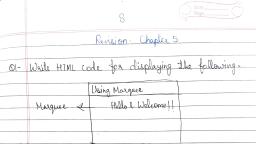 8
Revision - Chapter 5
Q1- Write HTML code for displaying the following.
Using Marquee
Marquee ← Hello & Welcome!!